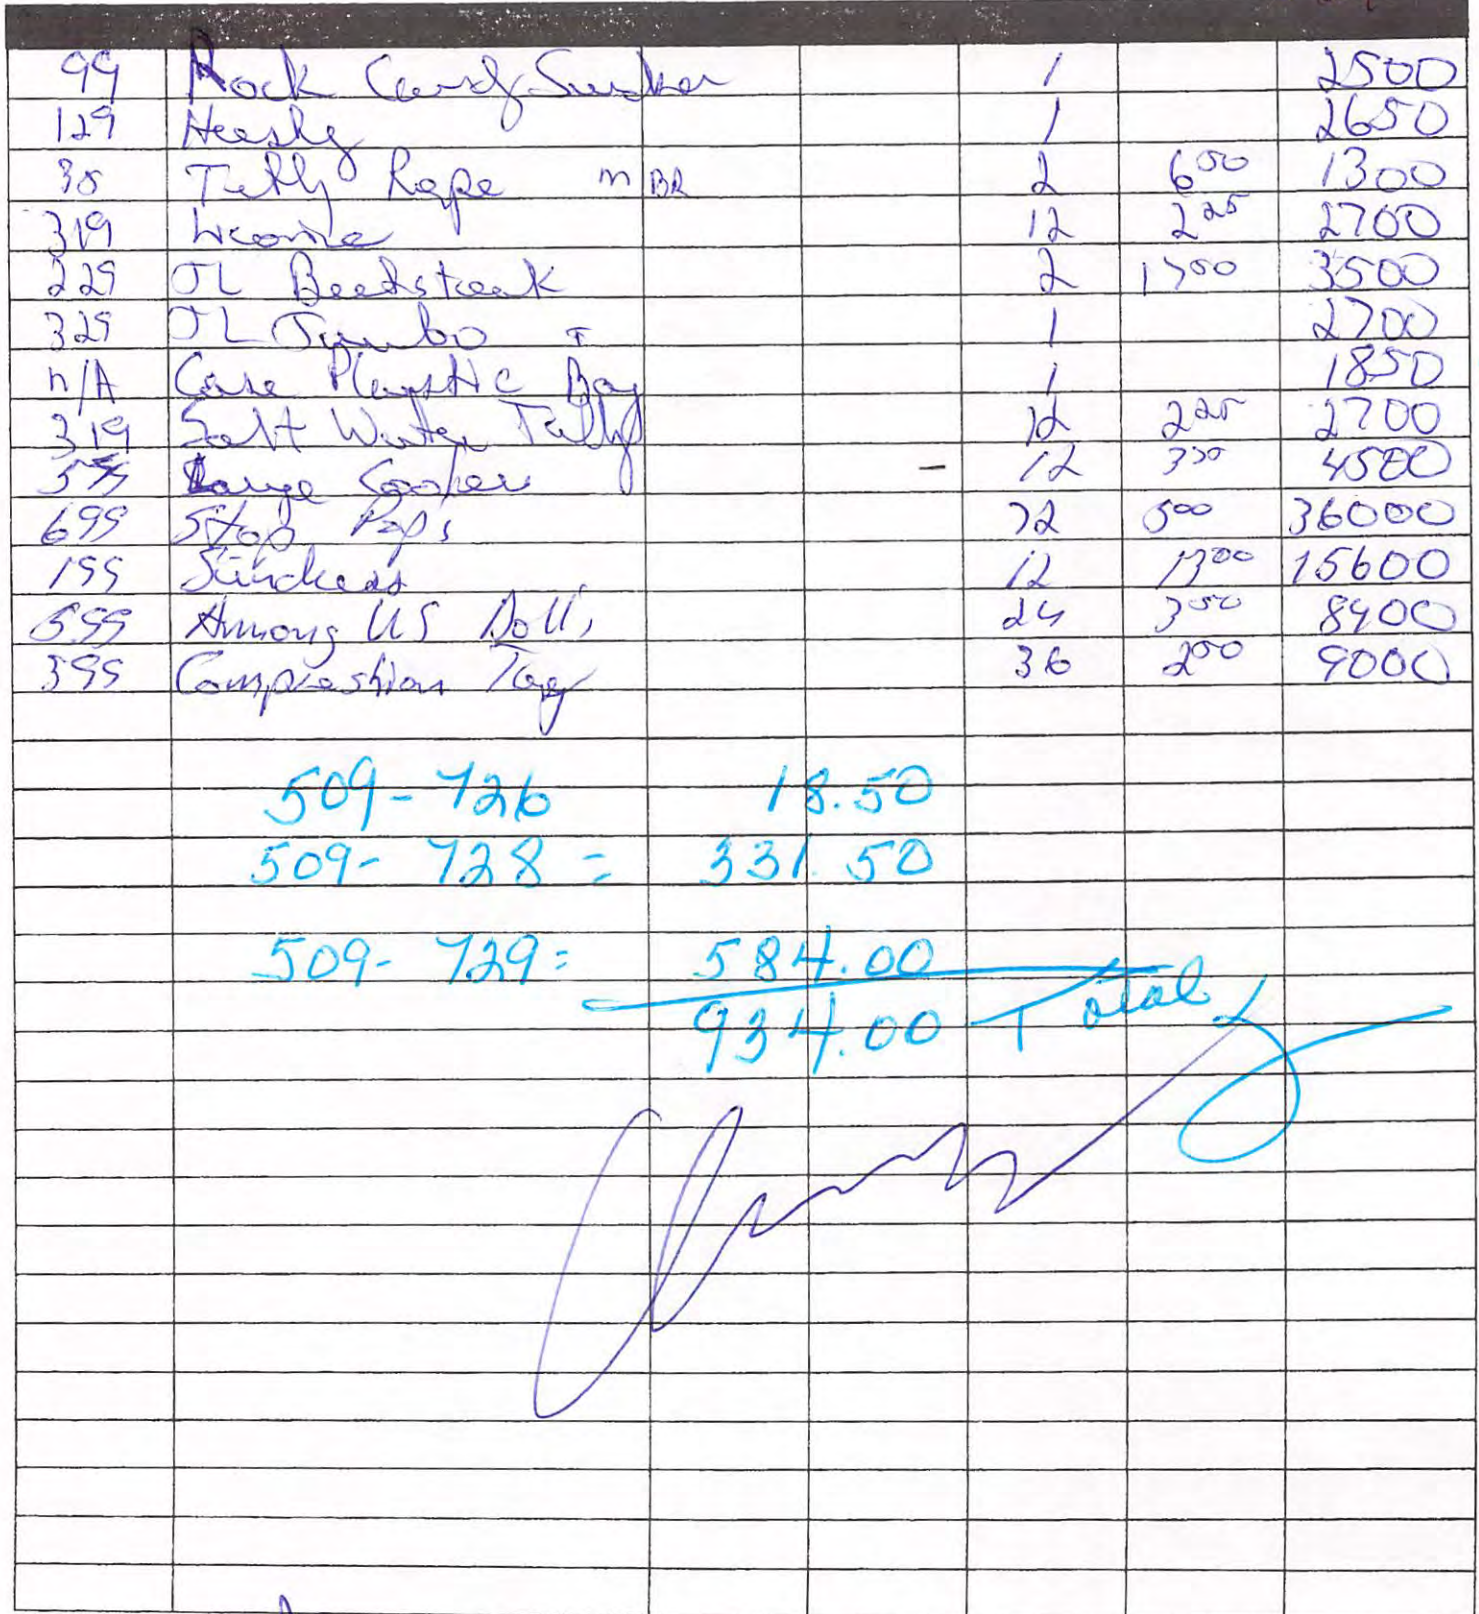 99 Rock Candy Sucker 1 2500
129 Heeshy 1 2650
35 Taffy Rope m BR 2 6 50 1300
319 Licorice 12 2 25 2700
229 JL Beefsteak 2 17 50 3500
329 JL Jumbo 1 2700
n/A Case Plastic Bag 1 1850
319 Salt Water Taffy 12 2 25 2700
Large - 12 4500
699 Stop Pops 72 5 00 36000
199 Suckers 12 13 00 15600
599 Among US Dolls 24 3 50 8400
399 Compreshion Toy 36 2 50 9000
509-726 18.50
509-728 = 331.50
509-729 = 584.00
934.00 Total